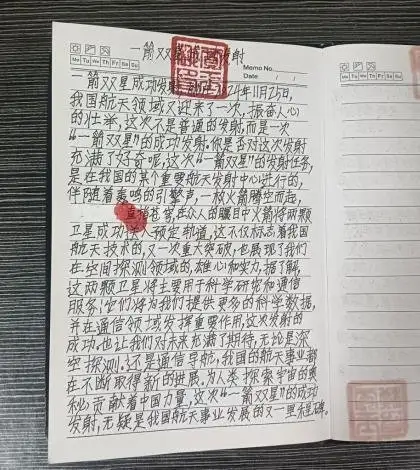 一箭双星成功发射
Memo No.
Date / /
Mo Tu We Th Fr Sa Su
Mo Tu We Th Fr Sa Su
一箭双星成功发射,就在2024年11月25日,
我国航天领域又迎来了一次,振奋人心
的壮举,这次不是普通的发射,而是一次
"一箭双星"的成功发射.你是否对这次发射
充满了好奇呢,这次"一箭双星"的发射任务,
是在我国的某个重要航天发射中心进行的,
伴随着轰鸣的引擎声,一枚火箭腾空而起,
直指苍穹,在众人的瞩目中火箭将两颗
卫星成功送入预定轨道,这不仅标志着我国
航天技术的,又一次重大突破,也展现了我们
在空间探测领域的,雄心和实力,据了解,
这两颗卫星将主要用于科学研究和通信
服务!它们将为我们提供更多的科学数据,
并在通信领域发挥重要作用,这次发射的
成功,也让我们对未来充满了期待,无论是深
空探测.还是通信导航,我国的航天事业都
在不断取得新的进展.为人类探索宇宙的奥
秘贡献着中国力量,这次"一箭双星"的成功
发射,无疑是我国航天事业发展的又一里程碑.